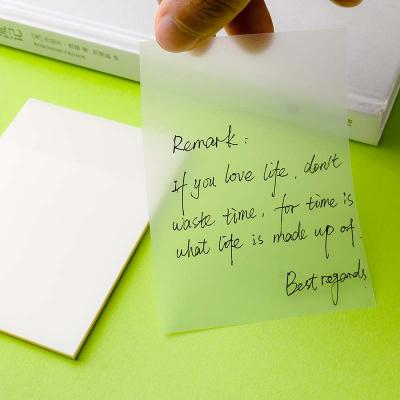 Remark:
If you love life, don't
waste time, for time is
what life is made up of.
Best regards!